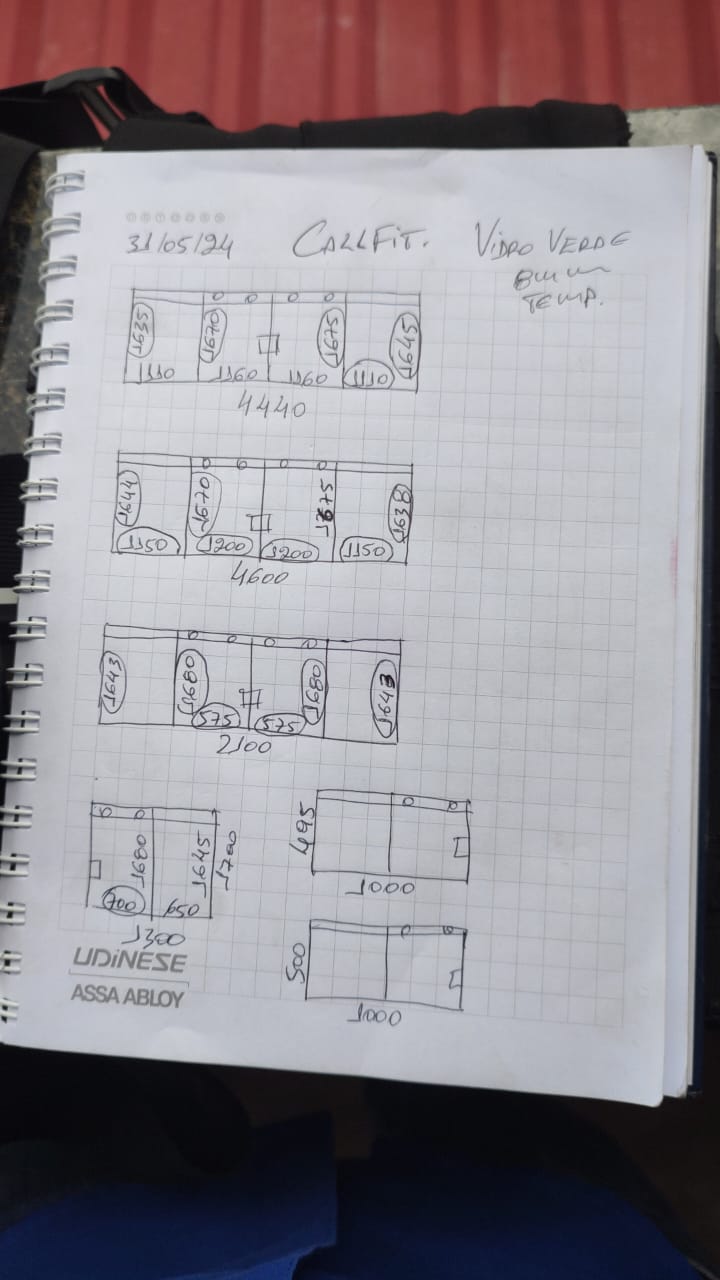 31/05/24 CALLFIT. VIDRO VERDE
8mm
TEMP.
1635 1670 1675 1645
1110 1160 1160 1110
4440
1644 1670 1675 1638
1150 1200 1200 1150
4600
1643 1680 1680 1643
575 575
2100
1680 1645 1700
700 650
1300
495
1000
500
1000
UDINESE
ASSA ABLOY